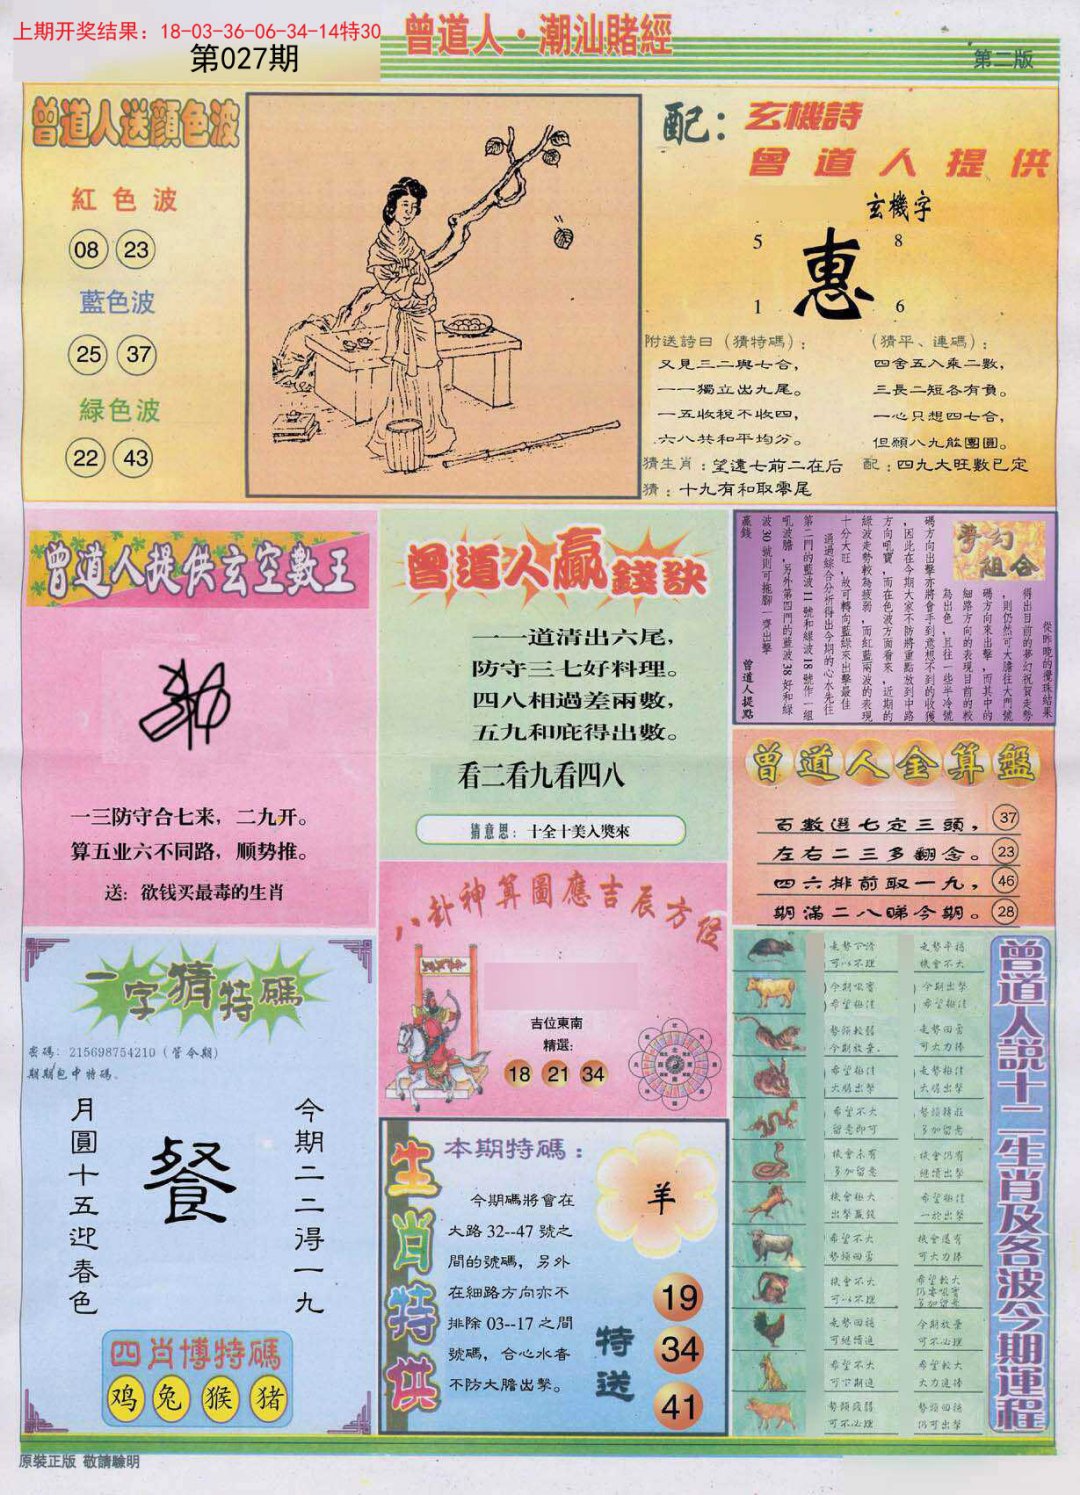 上期开奖结果：18-03-36-06-34-14特30
第027期
曾道人·潮汕賭經
第二版
曾道人送顏色波
紅色波
08 23
藍色波
25 37
緑色波
22 43
配：玄機詩
曾道人提供
玄機字
5 8
惠
1 6
附送詩曰（猜特碼）：
又見三二與七合，
一一獨立出九尾。
一五收稅不收四，
六八共和平均分。
猜生肖：望遠七前二在后
猜：十九有和取零尾
（猜平、連碼）：
四舍五入乘二數，
三長二短各有負。
一心只想四七合，
但願八九能團圓。
配：四九大旺數已定
曾道人提供玄空數王
一三防守合七来，二九开。
算五业六不同路，顺势推。
送：欲钱买最毒的生肖
曾道人贏錢訣
一一道清出六尾，
防守三七好料理。
四八相過差兩數，
五九和庇得出數。
看二看九看四八
猜意思：十全十美入獎來
夢幻組合
從昨晚的攪珠結果
得出目前的夢幻祝賀走勢
，則仍然可大膽往大門號
碼方向來出擊，而其中的
細路方向的表現目前的較
為出色，且往一些半冷號
碼方向出擊亦將會手到意想不到的收獲
，因此在今期大家不防將重點放到中路
方向吼寶，而在色波方面看來，近期的
綠波走勢較為疲弱，而紅藍兩波的表現
十分大旺，故可轉向藍綠來出擊最佳
通過綜合分析得出今期的心水先往
第二門的藍波11號和綠波18號作一組
吼波膽，另外第四門的藍波38好和綠
波30號則可拖腳一齊出擊
贏錢
曾道人提點
曾道人金算盤
百數選七定三頭，37
左右二三多翻念。23
四六排前取一九，46
期滿二八睇今期。28
一字猜特碼
密碼：215698754210（管令期）
期期包中特碼。
今期二二得一九
餐
月圓十五迎春色
四肖博特碼
鸡 兔 猴 猪
八卦神算圖應吉辰方位
吉位東南
精選：
18 21 34
生肖特供
本期特碼：
今期碼將會在
大路32--47號之
間的號碼，另外
在細路方向亦不
排除03--17之間
號碼，合心水者
不防大膽出擊。
羊
特送
19
34
41
曾道人說十二生肖及各波今期運程
原裝正版 敬請驗明